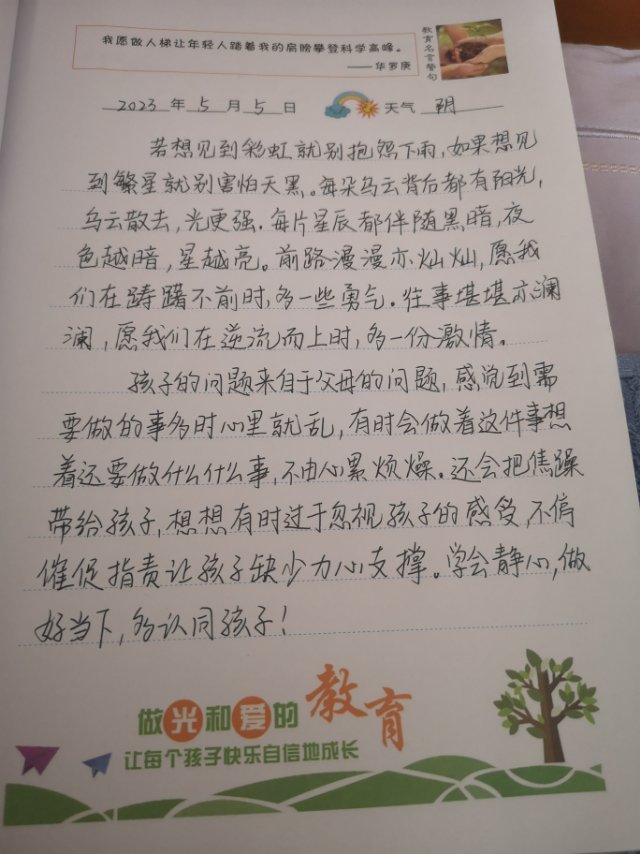 我愿做人梯让年轻人踏着我的肩膀攀登科学高峰。
——华罗庚
教育名言警句
2023年5月5日 天气 阴
若想见到彩虹就别抱怨下雨,如果想见
到繁星就别害怕天黑。每朵乌云背后都有阳光,
乌云散去,光更强.每片星辰都伴随黑暗,夜
色越暗,星越亮。前路漫漫亦灿灿,愿我
们在踌躇不前时,多一些勇气。往事堪堪亦澜
澜,愿我们在逆流而上时,多一份激情。
孩子的问题来自于父母的问题,感觉到需
要做的事多时心里就乱,有时会做着这件事想
着还要做什么什么事,不由心累烦燥。还会把焦躁
带给孩子,想想有时过于忽视孩子的感受,不停
催促指责让孩子缺少力心支撑。学会静心,做
好当下,多认同孩子!
做光和爱的教育
让每个孩子快乐自信地成长